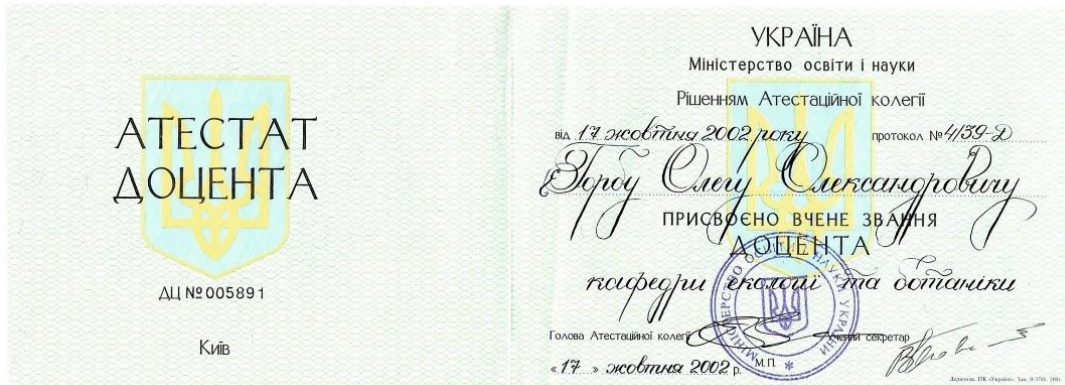 АТЕСТАТ
ДОЦЕНТА
ДЦ №005891
Київ
УКРАЇНА
Міністерство освіти і науки
Рішенням Атестаційної колегії
від 17 жовтня 2002 року протокол № 4/39-Д
Горбу Олегу Олександровичу
ПРИСВОЄНО ВЧЕНЕ ЗВАННЯ
ДОЦЕНТА
кафедри екології та ботаніки
МІНІСТЕРСТВО ОСВІТИ І НАУКИ УКРАЇНИ
Голова Атестаційної колегії Учений секретар
«17» жовтня 2002 р. М.П.